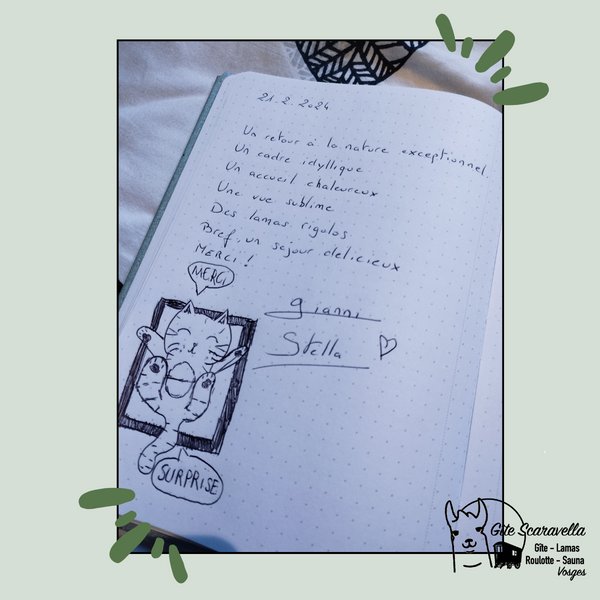 21.2.2024
Un retour à la nature exceptionnel.
Un cadre idyllique
Un accueil chaleureux
Une vue sublime
Des lamas rigolos
Bref, un séjour délicieux
MERCI !
MERCI
Gianni
Stella
SURPRISE
Gîte Scaravella
Gîte - Lamas
Roulotte - Sauna
Vosges